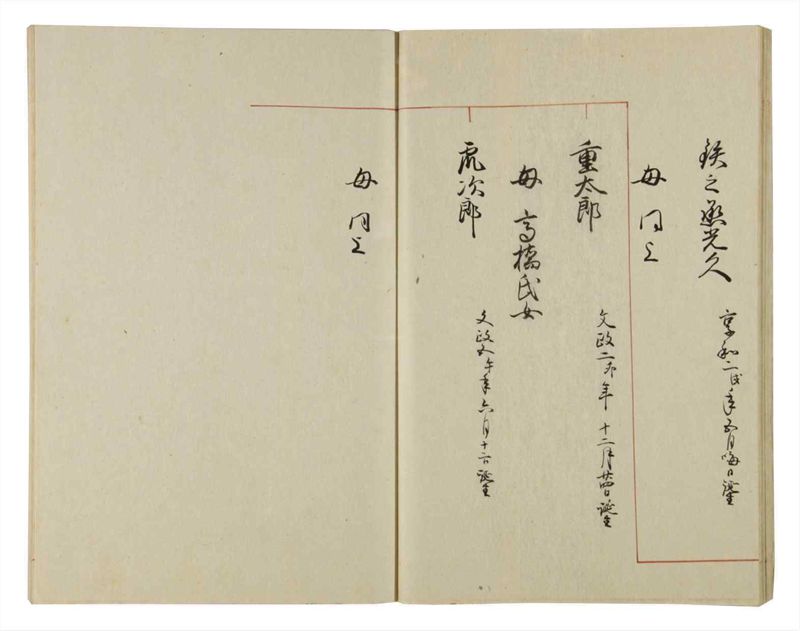 鉄之丞光久
享和二戌年五月晦日誕生
母 同上
重太郎
文政二卯年十二月廿四日誕生
母 高橋氏女
虎次郎
文政五午年六月十六日誕生
母 同上